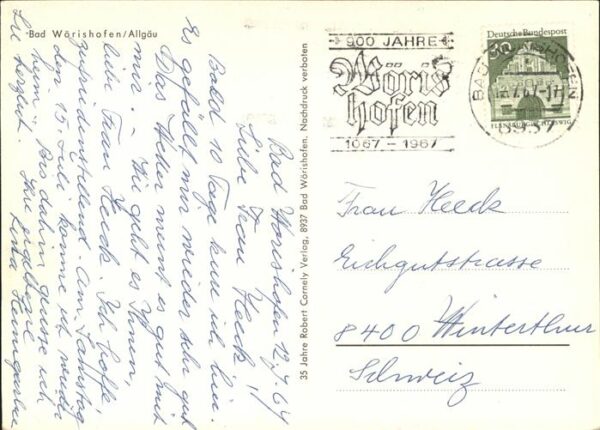 Bad Wörishofen/Allgäu
Bad Wörishofen 12.7.67
Liebe Frau Heeck!
Bald 10 Tage bin ich hier.
Es gefällt mir wieder sehr gut
Das Wetter meint es gut mit
mir. - Wie geht es Ihnen,
liebe Frau Heeck. Ich hoffe,
zufriedenstellend. Am Samstag
den 15. Juli komme ich wieder
heim. Bis dahin grüsse ich
Sie herzlich. Ihre
Lina
35 Jahre Robert Cornely Verlag, 8937 Bad Wörishofen, Nachdruck verboten
900 JAHRE
Wöris
hofen
1067 - 1967
Deutsche Bundespost
30
FLENSBURG SCHLESWIG
BAD WÖRISHOFEN
8937
Frau Heeck
Eichgutstrasse
8400 Winterthur
Schweiz